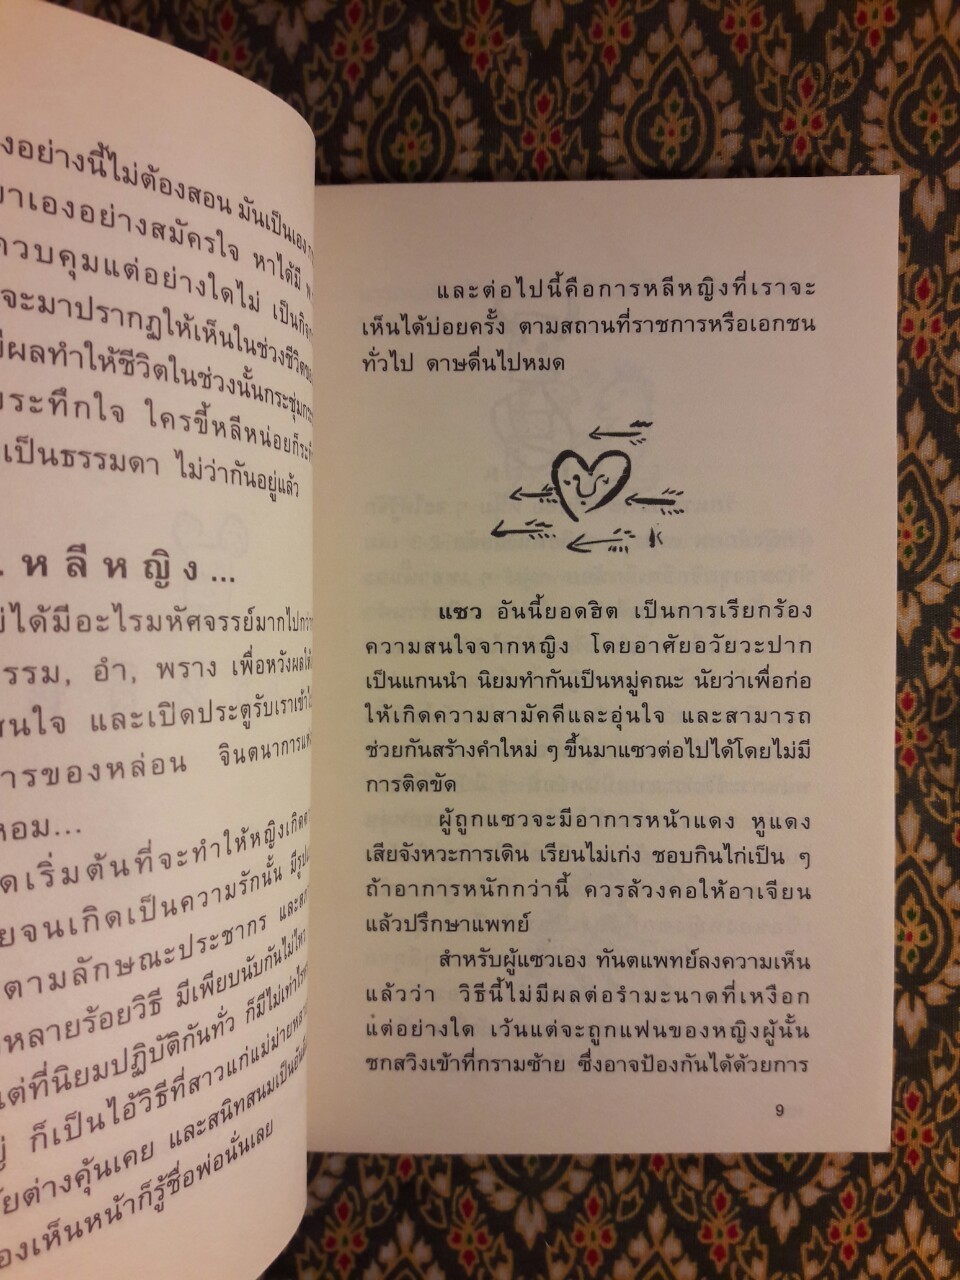 งอย่างนี้ไม่ต้องสอน มันเป็นเอง
มาเองอย่างสมัครใจ หาได้มี
ควบคุมแต่อย่างใดไม่
จะมาปรากฏให้เห็นในช่วงชีวิต
มีผลทำให้ชีวิตในช่วงนั้นกระชุ่มกระ
ระทึกใจ ใครขี้หลีหน่อยก็
เป็นธรรมดา ไม่ว่ากันอยู่แล้ว
หลีหญิง...
ได้มีอะไรมหัศจรรย์มากไปกว่า
รรม, อำ, พราง เพื่อหวังผล
สนใจ และเปิดประตูรับเราเข้าไป
ารของหล่อน จินตนาการ
หอม...
ดเริ่มต้นที่จะทำให้หญิงเกิด
ยจนเกิดเป็นความรักนั้น มี
ตามลักษณะประชากร และ
หลายร้อยวิธี มีเพียบนับกันไม่ไหว
แต่ที่นิยมปฏิบัติกันทั่ว ก็มีไม่เท่าไร
ก็เป็นไอ้วิธีที่สาวแก่แม่ม่าย
ัยต่างคุ้นเคย และสนิทสนมเป็น
องเห็นหน้าก็รู้ชื่อพ่อนั่นเลย
และต่อไปนี้คือการหลีหญิงที่เราจะ
เห็นได้บ่อยครั้ง ตามสถานที่ราชการหรือเอกชน
ทั่วไป ดาษดื่นไปหมด
แซว อันนี้ยอดฮิต เป็นการเรียกร้อง
ความสนใจจากหญิง โดยอาศัยอวัยวะปาก
เป็นแกนนำ นิยมทำกันเป็นหมู่คณะ นัยว่าเพื่อก่อ
ให้เกิดความสามัคคีและอุ่นใจ และสามารถ
ช่วยกันสร้างคำใหม่ ๆ ขึ้นมาแซวต่อไปได้โดยไม่มี
การติดขัด
ผู้ถูกแซวจะมีอาการหน้าแดง หูแดง
เสียจังหวะการเดิน เรียนไม่เก่ง ชอบกินไก่เป็น ๆ
ถ้าอาการหนักกว่านี้ ควรล้วงคอให้อาเจียน
แล้วปรึกษาแพทย์
สำหรับผู้แซวเอง ทันตแพทย์ลงความเห็น
แล้วว่า วิธีนี้ไม่มีผลต่อรำมะนาดที่เหงือก
แต่อย่างใด เว้นแต่จะถูกแฟนของหญิงผู้นั้น
ชกสวิงเข้าที่กรามซ้าย ซึ่งอาจป้องกันได้ด้วยการ
9